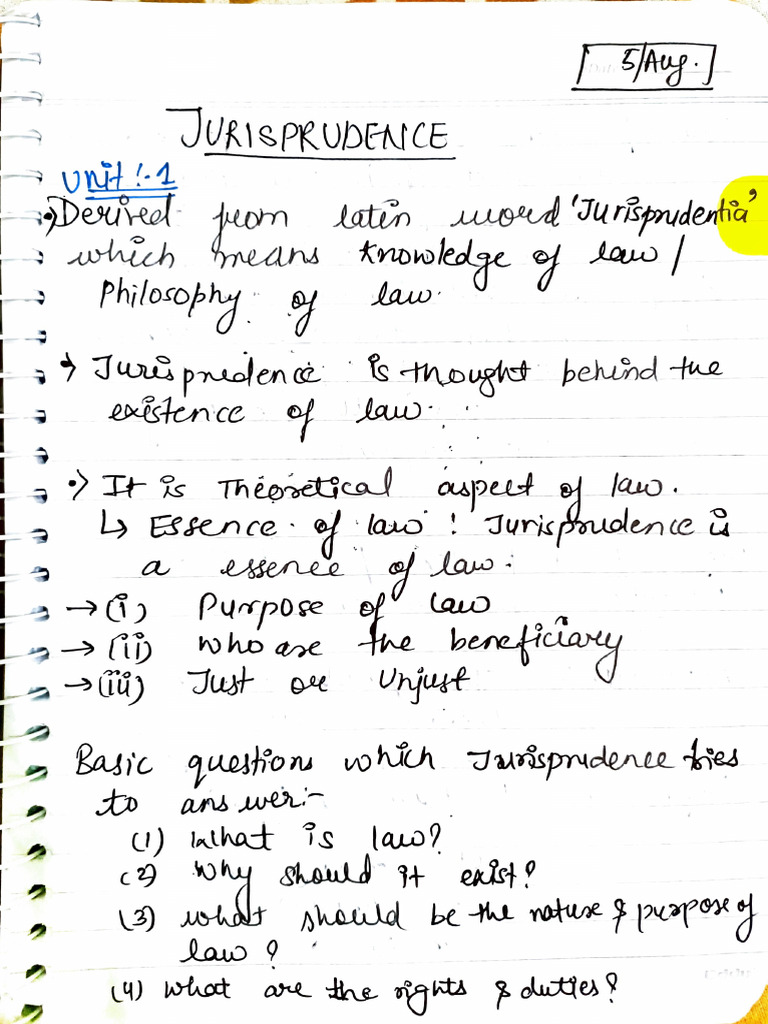 5/Aug.
JURISPRUDENCE
Unit :- 1
Derived from latin word 'Jurisprudentia'
which means Knowledge of law /
Philosophy of law.
→ Jurisprudence is thought behind the
existence of law.
•) It is Theoretical aspect of law.
↳ Essence of law : Jurisprudence is
a essence of law.
→ (i) Purpose of law
→ (ii) who are the beneficiary
→ (iii) Just or Unjust
Basic questions which Jurisprudence tries
to answer:-
(1) What is law?
(2) Why should it exist?
(3) what should be the nature & purpose of
law ?
(4) What are the rights & duties?